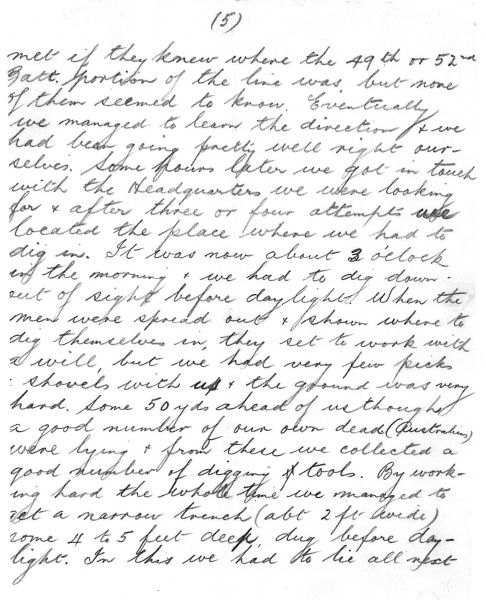 (5)
met if they knew where the 49th or 52nd
Batt. portion of the line was, but none
of them seemed to know. Eventually
we managed to learn the direction & we
had been going pretty well right our-
selves. Some hours later we got in touch
with the Headquarters we were looking
for & after three or four attempts we
located the place where we had to
dig in. It was now about 3 o'clock
in the morning & we had to dig down
out of sight before daylight. When the
men were spread out & shown where to
dig themselves in, they set to work with
a will, but we had very few picks
& shovels with us & the ground was very
hard. Some 50 yds ahead of us though
a good number of our own dead (Australians)
were lying & from these we collected a
good number of digging tools. By work-
ing hard the whole time we managed to
get a narrow trench (abt 2 ft wide)
some 4 to 5 feet deep, dug before day-
light. In this we had to lie all next